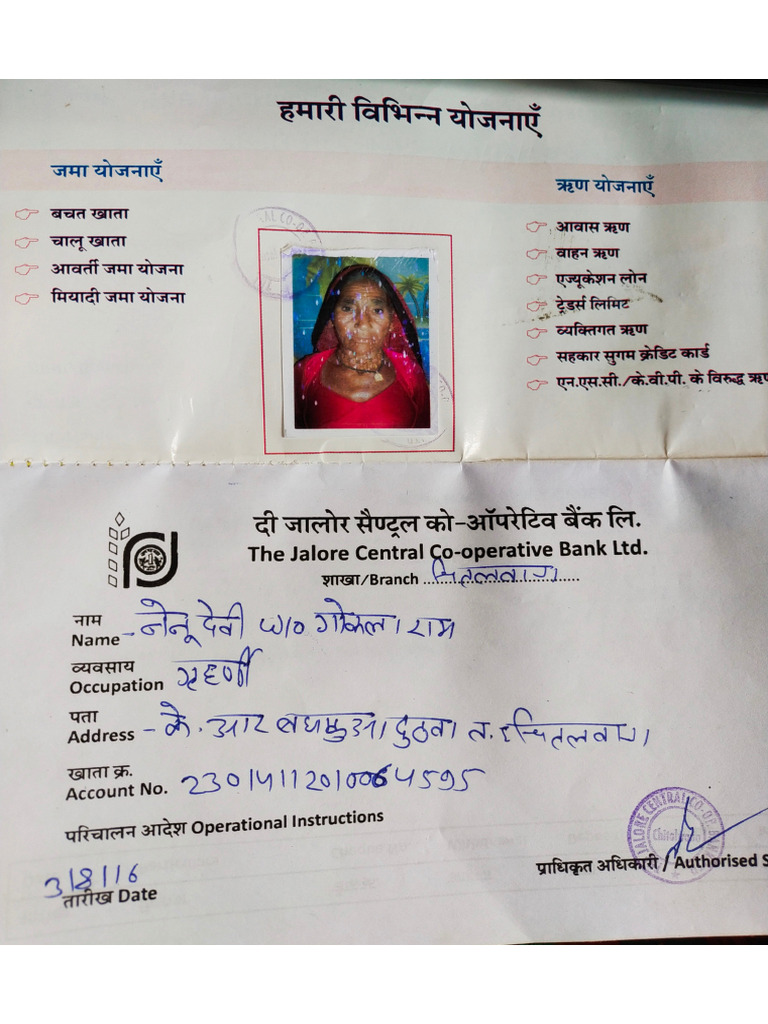 हमारी विभिन्न योजनाएँ
जमा योजनाएँ
बचत खाता
चालू खाता
आवर्ती जमा योजना
मियादी जमा योजना
ऋण योजनाएँ
आवास ऋण
वाहन ऋण
एज्यूकेशन लोन
ट्रेडर्स लिमिट
व्यक्तिगत ऋण
सहकार सुगम क्रेडिट कार्ड
एन.एस.सी./के.वी.पी. के विरुद्ध ऋ
दी जालोर सैण्ट्रल को-ऑपरेटिव बैंक लि.
The Jalore Central Co-operative Bank Ltd.
शाखा/Branch चितलवाना
नाम
Name - नेनू देवी W/O गोकलाराम
व्यवसाय
Occupation गृहणी
पता
Address - के. आर बधाकुआ दुठवा त. चितलवाना
खाता क्र.
Account No. 23014112010064595
परिचालन आदेश Operational Instructions
3/8/16
तारीख Date
JALORE CENTRAL CO-OP
प्राधिकृत अधिकारी / Authorised S